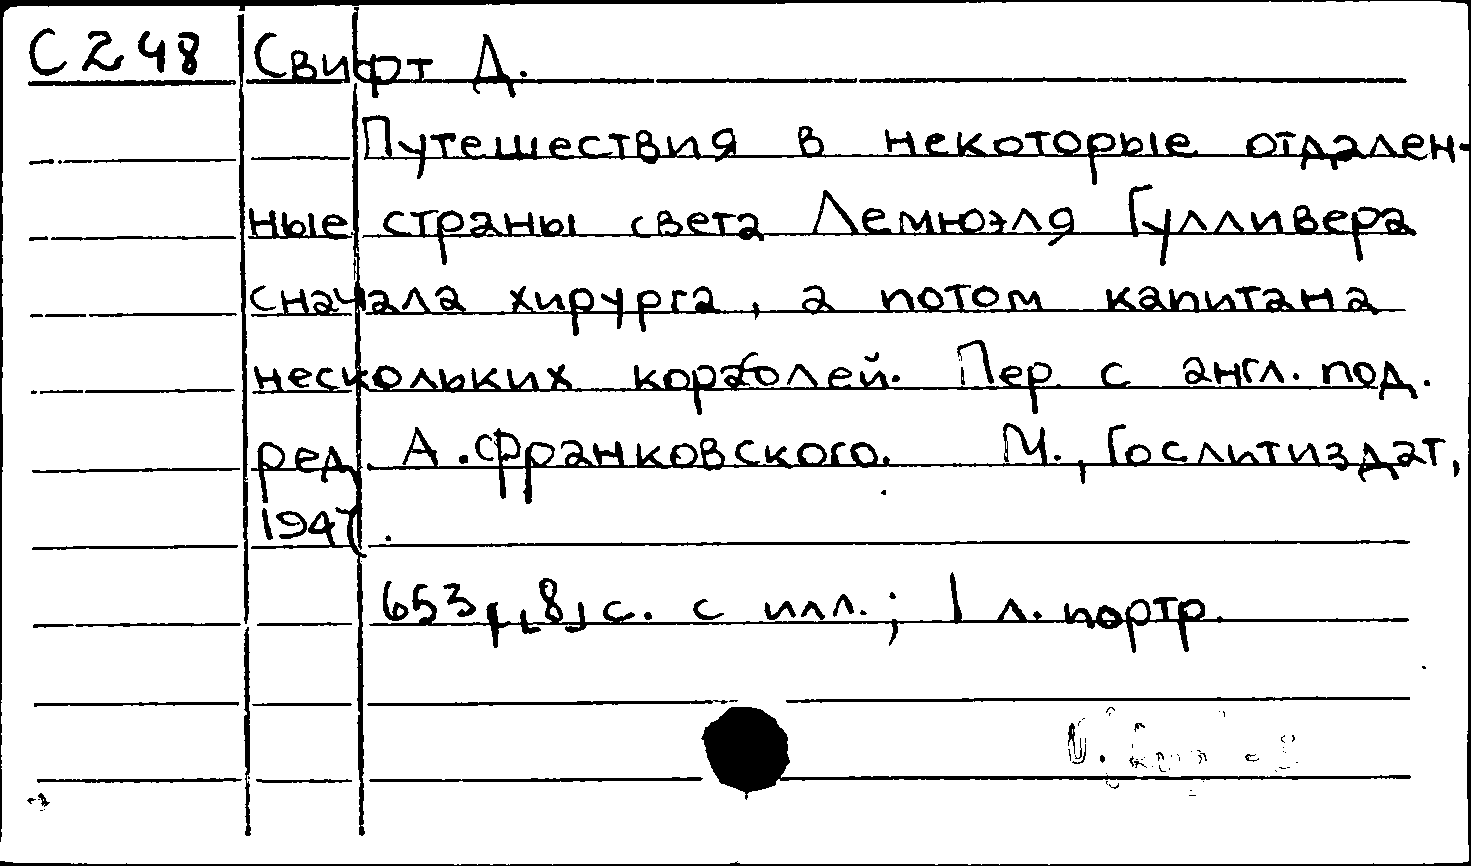 С248 Свифт Д.
Путешествия в некоторые отдален-
ные страны света Лемюэля Гулливера
сначала хирурга, а потом капитана
нескольких кораблей. Пер с англ. под.
ред. А.Франковского. М., Гослитиздат,
1947.
653,[8] с. с илл.; 1 л. портр.